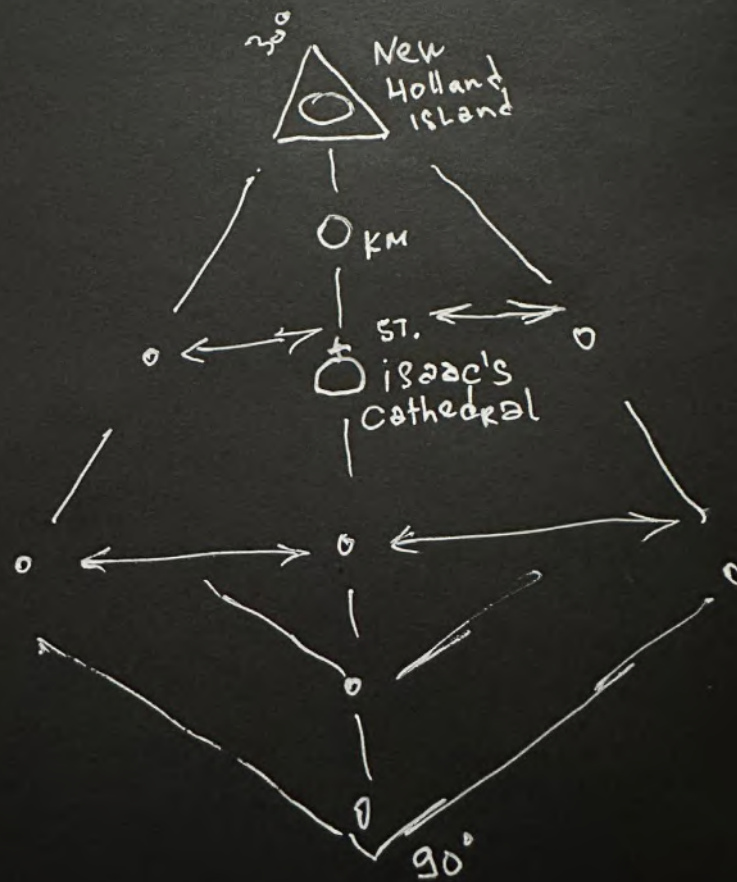 30°
New
Holland
island
KM
ST.
isaac's
cathedral
90°